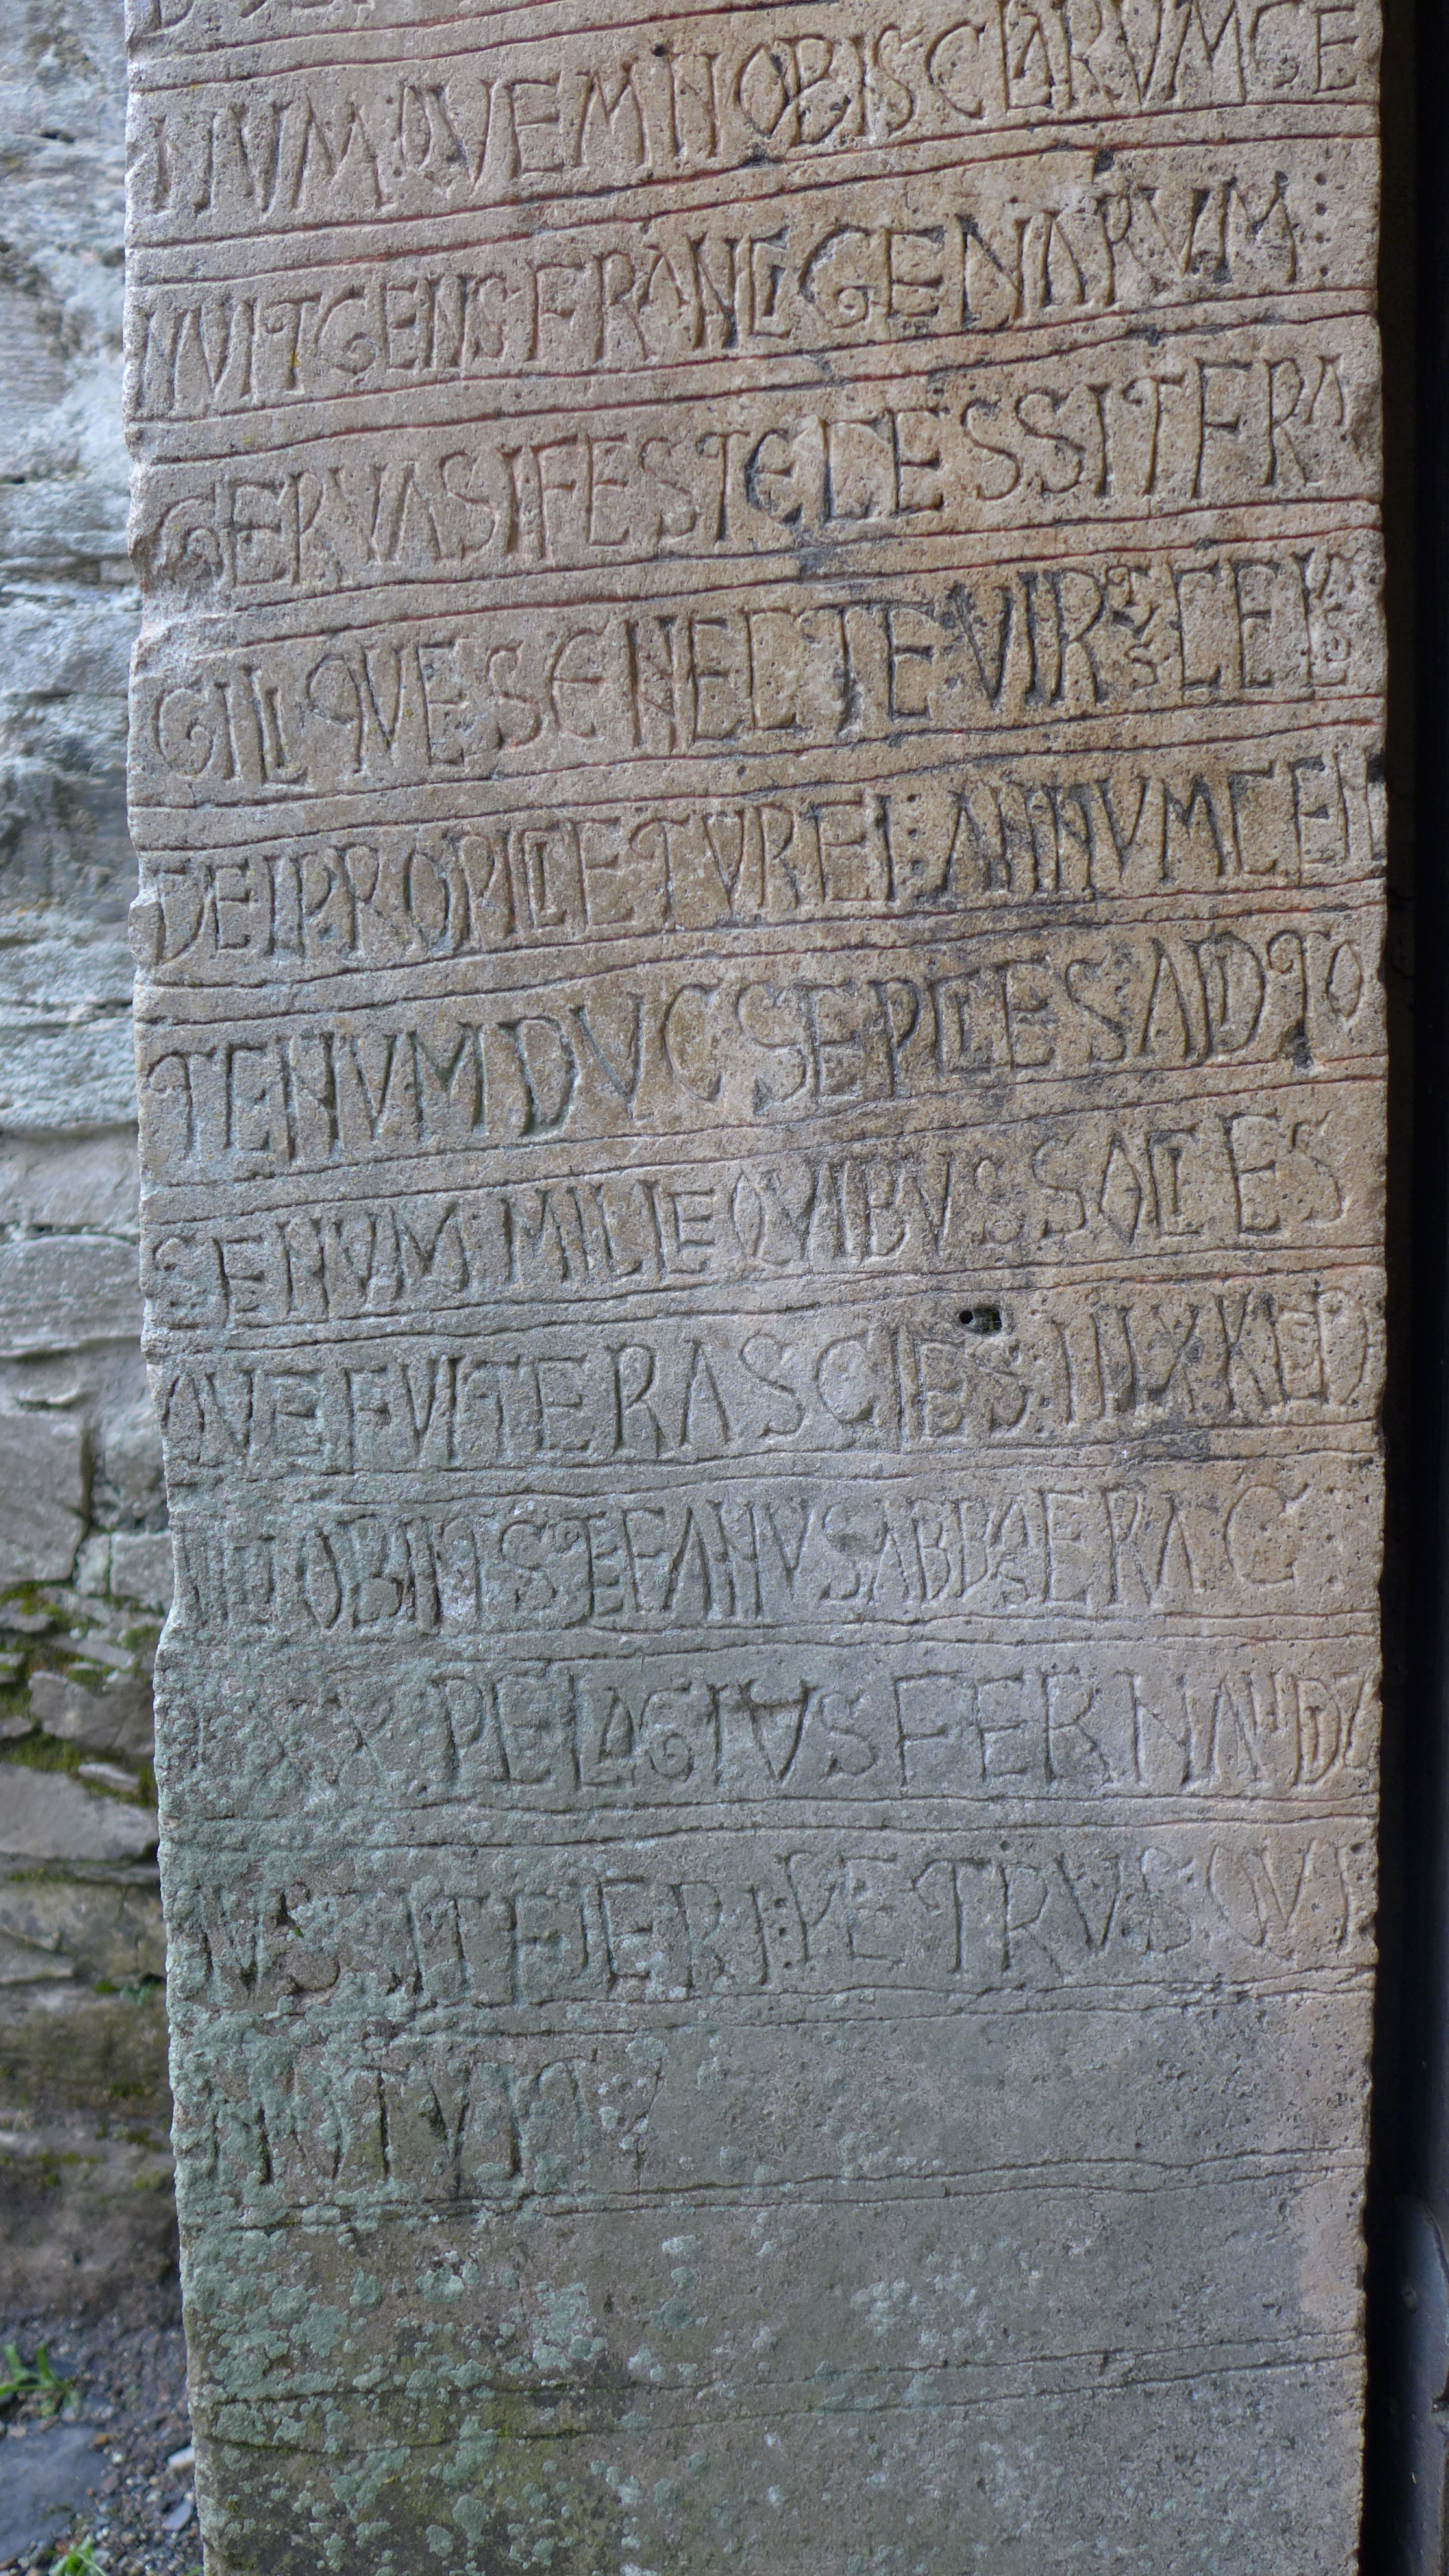 NVM QVEM NOBIS CLARVM GE
NVIT GENS FRANCIGENARVM :
GERVASI FESTE CESSIT FRA
GILIQVE SENECTE VIRTS CELS
DEI PROPICIETVR EI : ANNVM CEN
TENVM DVC SEPCIES ADDTO
SENVM : MILLE QVIBVS SOCIES
QVE FVIT ERA SCIES IIIX KLD
OBIIT STEFANVS ABBAS ERA C
X PELAGIVS FERNANDI
IVSSIT FIERI : PETRVS : QVI
NOTVIT